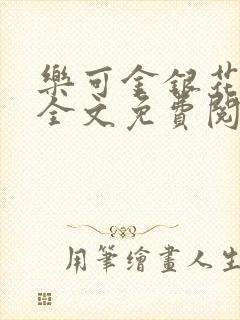 樂可金銀花
全文免費閱
用筆繪畫人生